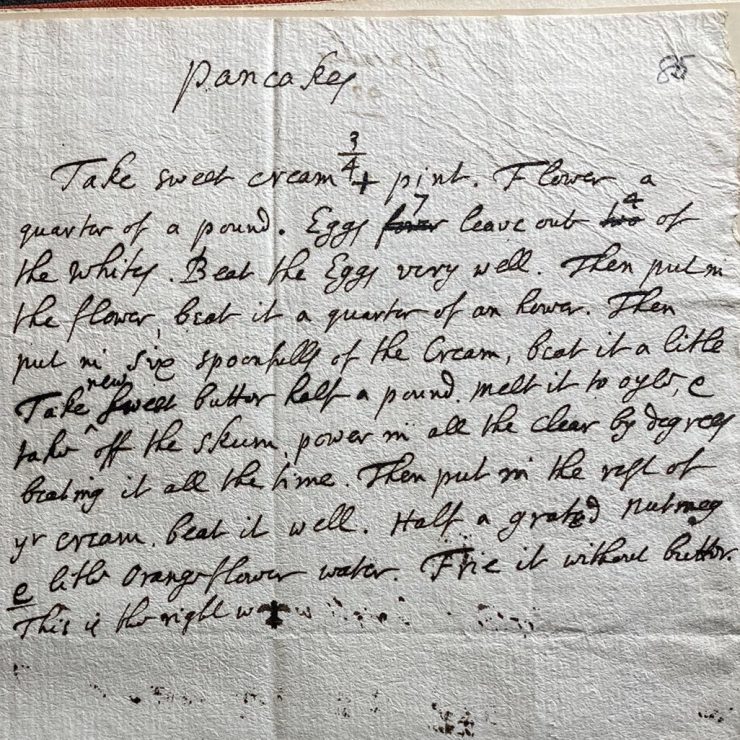 85
Pancakes
3/4
Take sweet cream + pint. Flower a
7 4
quarter of a pound. Eggs four leave out two of
the whites. Beat the Eggs very well. Then put in
the flower, beat it a quarter of an hower. Then
put in six spoonfulls of the Cream, beat it a litle
new
Take sweet butter half a pound. melt it to oyle, e
take off the skum, power in all the clear by degrees
beating it all the time. Then put in the rest of
yr cream. beat it well. Half a grated nutmeg
e litle orangeflower water. Frie it without butter.
This is the right w